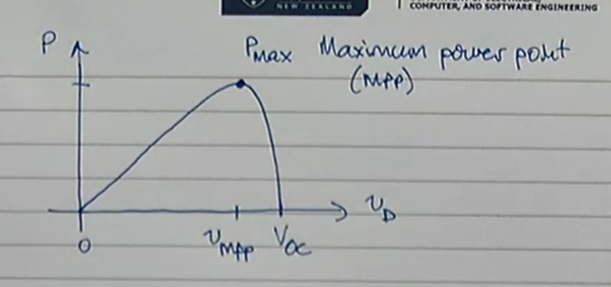 NEW ZEALAND
COMPUTER, AND SOFTWARE ENGINEERING
P
P_MAX Maximum power point
(MPP)
v_D
0
v_MPP V_OC